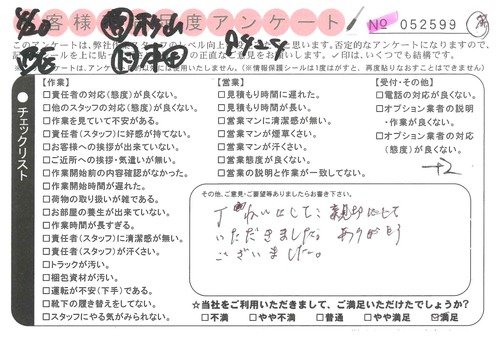 お客様満足度アンケート
№ 052599
このアンケートは、弊社
否定的なアンケートになりますので、
の正直なご意見をお願いします。✓印は、いくつでも結構です。
チェックリスト
【作業】
□責任者の対応(態度)が良くない。
□他のスタッフの対応(態度)が良くない。
□作業を見ていて不安がある。
□責任者(スタッフ)に好感が持てない。
□お客様への挨拶が出来ていない。
□ご近所への挨拶・気遣いが無い。
□作業開始前の内容確認がなかった。
□作業開始時間が遅れた。
□荷物の取り扱いが雑である。
□お部屋の養生が出来ていない。
□作業時間が長すぎる。
□責任者(スタッフ)に清潔感が無い。
□責任者(スタッフ)が汗くさい。
□トラックが汚い。
□梱包資材が汚い。
□運転が不安(下手)である。
□靴下の履き替えをしてない。
□スタッフにやる気がみられない。
【営業】
□見積もり時間に遅れた。
□見積もり時間が長い。
□営業マンに清潔感が無い。
□営業マンが煙草くさい。
□営業マンが汗くさい。
□営業態度が良くない。
□営業の説明と作業が一致してない。
【受付・その他】
□電話の対応が良くない。
□オプション業者の説明
・作業が良くない。
□オプション業者の対応
(態度)が良くない。
+2
その他、ご意見・ご要望等ありましたらお書き下さい。
丁ねいにして、親切にして
いただきました。ありがとう
ございました。
☆当社をご利用いただきまして、ご満足いただけたでしょうか?
□不満 □やや不満 □普通 □やや満足 ☑満足